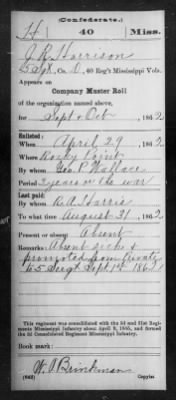 (Confederate.)
H 40 Miss.
J. R. Harrison
5 Sergt, Co. D, 40 Reg't Mississippi Vols.
Appears on
Company Muster Roll
of the organization named above,
for Sept & Oct, 1862
Enlisted:
When April 29, 1862
Where Rocky Point
By whom Geo. P. Wallace
Period 3 years or the war
Last paid:
By whom R. A. Harris
To what time August 31, 1862
Present or absent Absent
Remarks: Absent sick &
promoted from Private
to 5 Sergt Sept 1st 1862
This regiment was consolidated with the 3d and 31st Regiments Mississippi Infantry about April 9, 1865, and formed the 3d Consolidated Regiment Mississippi Infantry.
Book mark:
W. A. Brinkman
(642) Copyist.